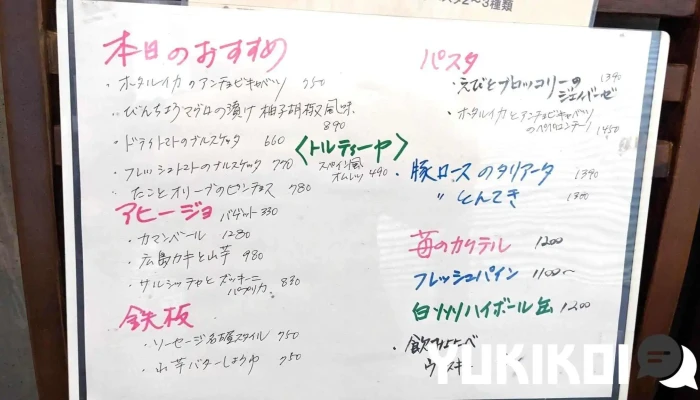 2～3種類
本日のおすすめ
・ホタルイカのアンチョビキャベツ 750
・びんちょうマグロの漬け 柚子胡椒風味
890
・ドライトマトのブルスケッタ 660
・フレッシュトマトのブルスケッタ 770
・たことオリーブのピンチョス 780
〈トルティーヤ〉
スペイン風
オムレツ 490
アヒージョ バゲット 330
・カマンベール 1280
・広島カキと山芋 980
・サルシッチャとズッキーニ
パプリカ 830
鉄板
・ソーセージ名古屋スタイル 750
・山芋バターしょうゆ 750
パスタ
・えびとブロッコリーの 1390
ジェノベーゼ
・ホタルイカとアンチョビキャベツ
のペペロンチーノ 1450
・豚ロースのタリアータ 1390
〃 とんてき 1380
苺のカクテル 1200
フレッシュパイン 1100～
白州ハイボール缶 1200
・飲みくらべ
ウイスキー
YUKIKOI